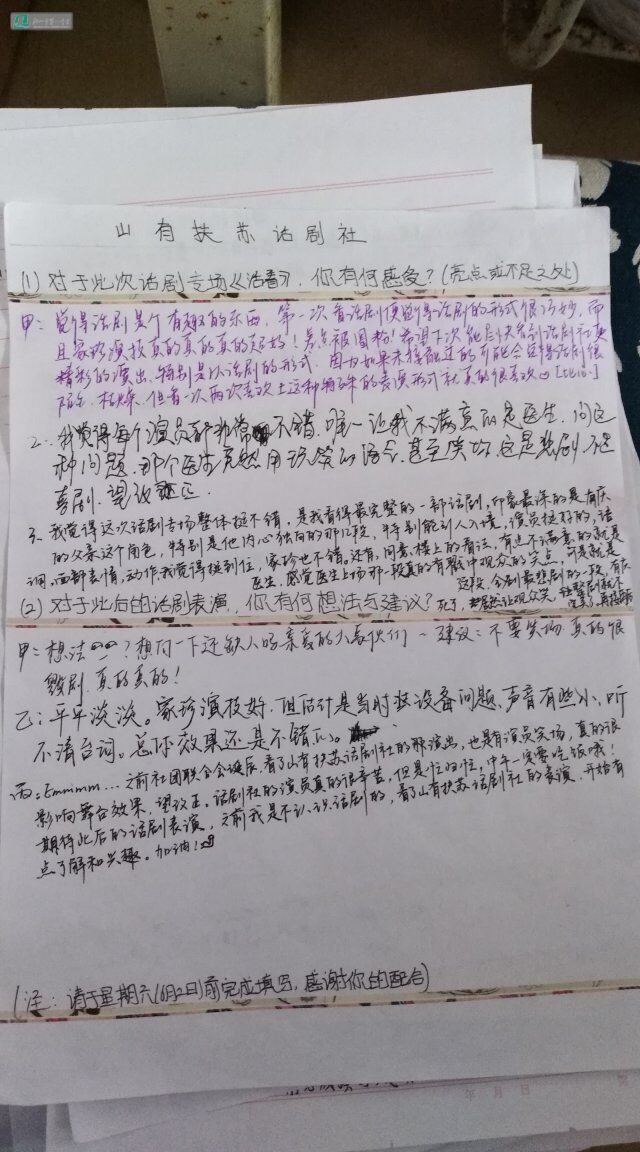 山有扶苏话剧社
(1) 对于此次话剧专场《活着》，你有何感受？(亮点或不足之处)
甲：觉得话剧是个有趣的东西，第一次看话剧便觉得话剧的形式很巧妙，而
且家珍演技真的真的真的超棒！差点被圈粉！希望下次能 话剧社更
精彩的演出，特别是以话剧的形式，因为如果未接触过的可能会觉得话剧很
陌生，枯燥，但看一次两次喜欢上这种特殊的表演形式就真的很喜欢
2、我觉得每个演员都非常不错，唯一让我不满意的是医生，问这
种问题，那个医生竟然用玩笑的语令，甚至笑场，这是悲剧，不是
喜剧，望改正
3、我觉得这次话剧专场整体挺不错，是我看得最完整的一部话剧，印象最深的是有庆
的父亲这个角色，特别是他内心独白的那几段，特别能引人入境，演员挺好的，台
词、面部表情，动作我觉得挺到位，家珍也不错。还有，同意楼上的看法，有点不满意的就是
医生，感觉医生上场那一段真的有戳中观众的笑点，可是就是
这段，全剧最悲剧的一段，有庆
(2) 对于此后的话剧表演，你有何想法与建议？
死了，居然让观众笑，
甲：想法 ？想问一下还缺人吗亲爱的 们～ 建议：不要笑场 真的很
毁剧 真的真的！
乙：平平淡淡。家珍演技好，但估计是当时装设备问题，声音有些小，听
不清台词。总体效果还是不错的。
丙：Emmmm... 之前社团联合会诞辰，看了山有扶苏话剧社的那演出，也是有演员笑场，真的很
影响舞台效果，望改正。话剧社的演员真的很辛苦，但是忙归忙，中午一定要吃饭哦！
期待此后的话剧表演，之前我是不认识话剧的，看了山有扶苏话剧社的表演，开始有
点了解和兴趣。加油！
(注：请于星期六(6月2日)前完成填写，感谢你的配合)
年 月 日